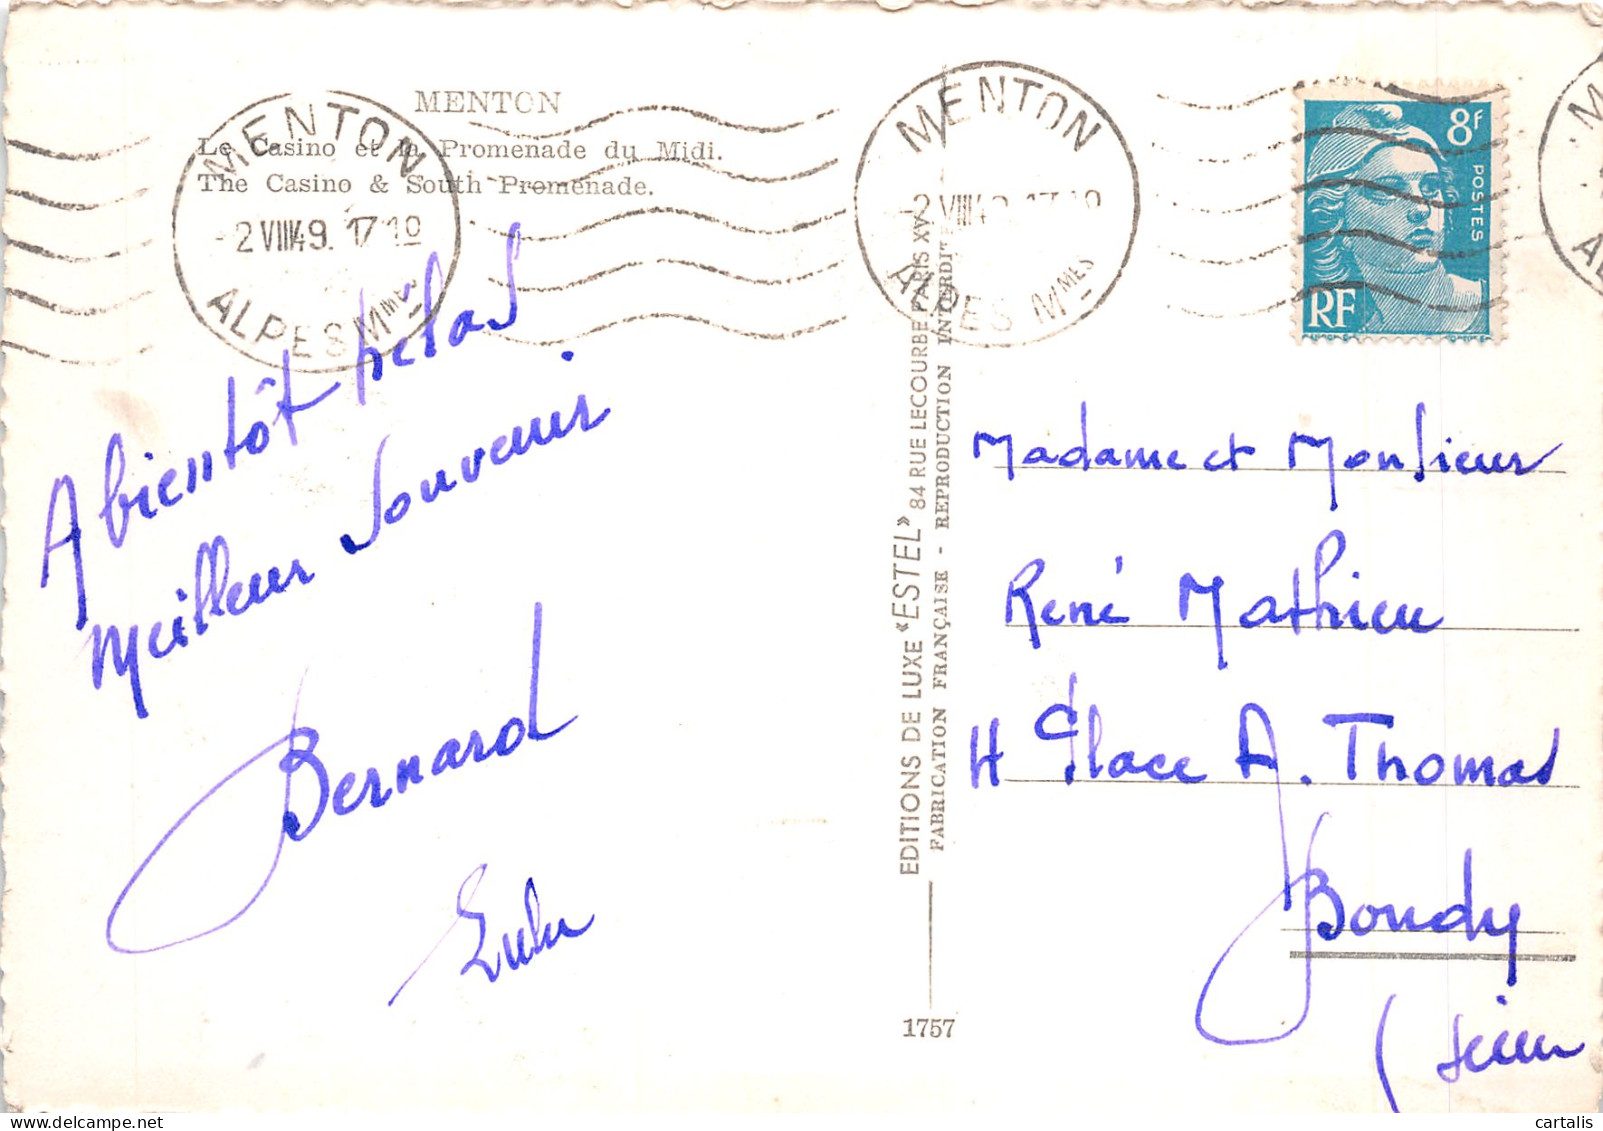 MENTON
Le Casino et la Promenade du Midi.
The Casino & South Promenade.
MENTON
-2 VIII 49. 17 10
ALPES Mmes
A bientôt hélas
Meilleur souvenir.
Bernard
Lulu
EDITIONS DE LUXE «ESTEL» 84 RUE LECOURBE PARIS XV
FABRICATION FRANÇAISE - REPRODUCTION INTERDITE
1757
MENTON
-2 VIII 49 17 10
ALPES Mmes
8f
POSTES
RF
Madame et Monsieur
René Mathieu
4 Place A. Thomas
Bondy
(Seine
cartalis